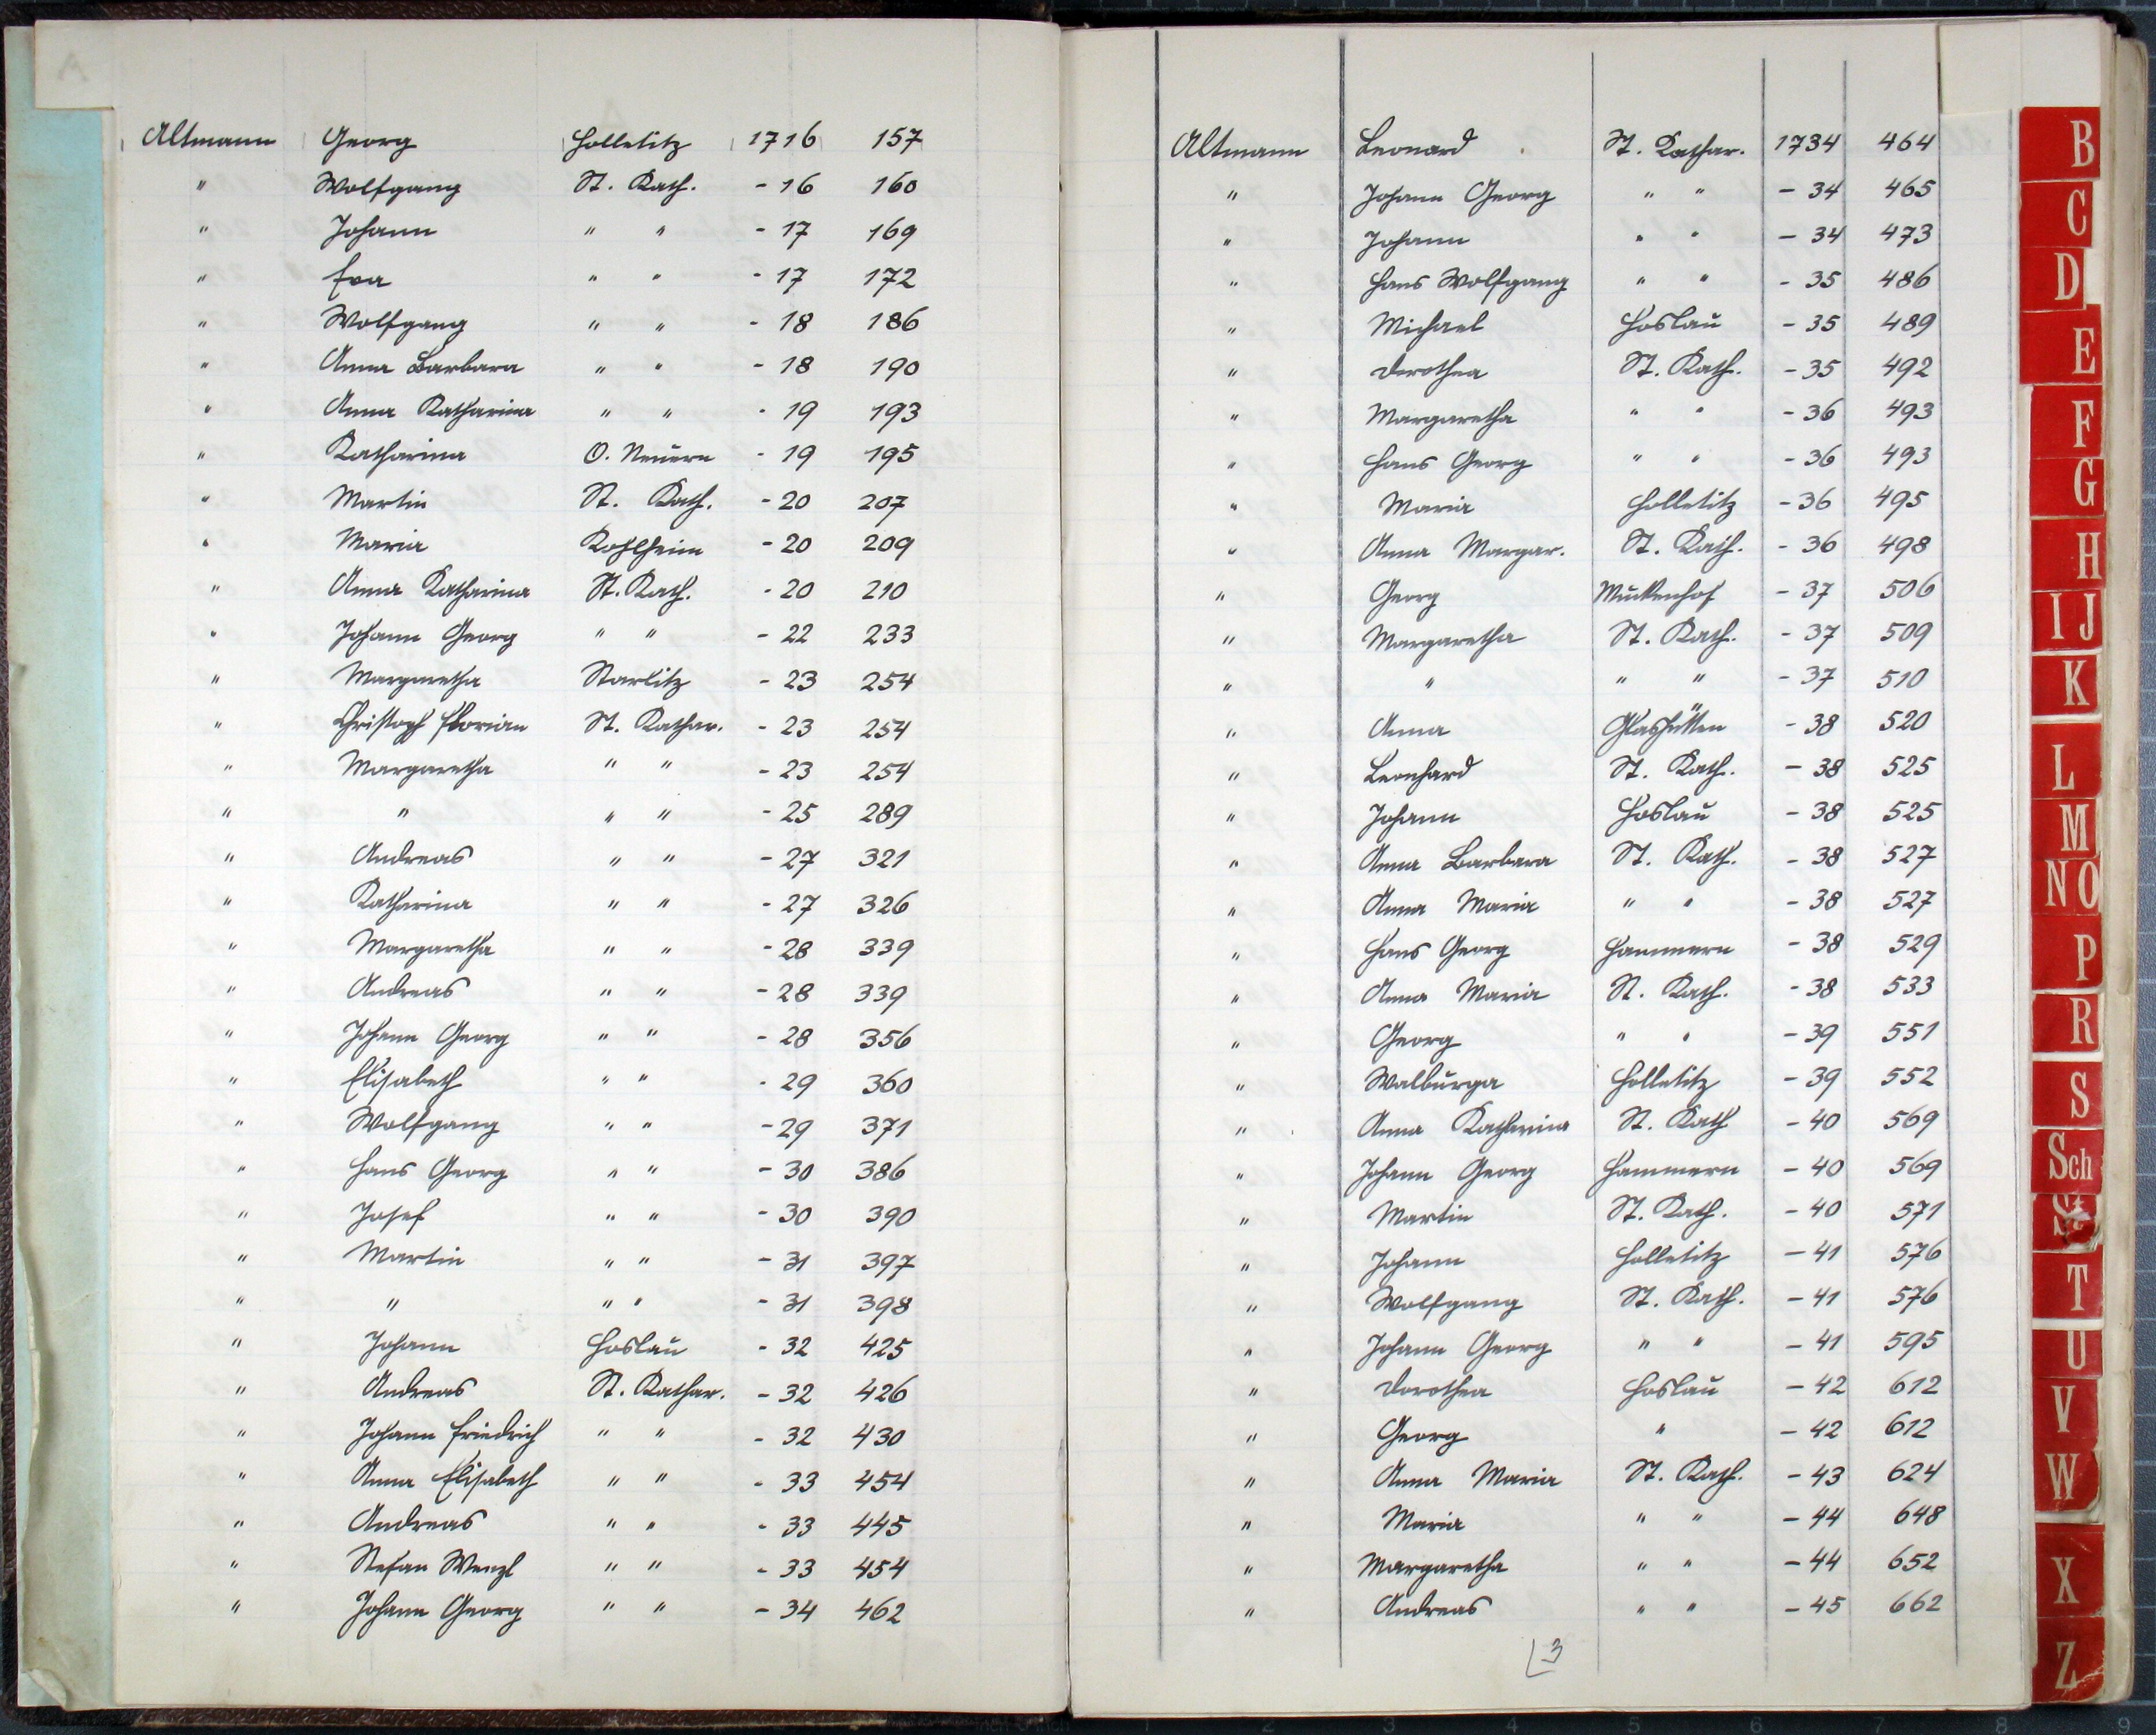 Altmann Georg Holletitz 1716 157
" Wolfgang St. Kath. - 16 160
" Johann " " - 17 169
" Eva " " - 17 172
" Wolfgang " " - 18 186
" Anna Barbara " " - 18 190
" Anna Katharina " " - 19 193
" Katharina O. Neuern - 19 195
" Martin St. Kath. - 20 207
" Maria Kohlheim - 20 209
" Anna Katharina St. Kath. - 20 210
" Johann Georg " " - 22 233
" Margaretha Starlitz - 23 254
" Christoph Florian St. Kathar. - 23 254
" Margaretha " " - 23 254
" " " " - 25 289
" Andreas " " - 27 321
" Katharina " " - 27 326
" Margaretha " " - 28 339
" Andreas " " - 28 339
" Johann Georg " " - 28 356
" Elisabeth " " - 29 360
" Wolfgang " " - 29 371
" Hans Georg " " - 30 386
" Josef " " - 30 390
" Martin " " - 31 397
" " " " - 31 398
" Johann Hoslau - 32 425
" Andreas St. Kathar. - 32 426
" Johann Friedrich " " - 32 430
" Anna Elisabeth " " - 33 454
" Andreas " " - 33 445
" Stefan Wenzl " " - 33 454
" Johann Georg " " - 34 462
Altmann Leonard St. Kathar. 1734 464
" Johann Georg " " - 34 465
" Johann " " - 34 473
" Hans Wolfgang " " - 35 486
" Michael Hoslau - 35 489
" Dorothea St. Kath. - 35 492
" Margaretha " " - 36 493
" Hans Georg " " - 36 493
" Maria Holletitz - 36 495
" Anna Margar. St. Kath. - 36 498
" Georg Muckenhof - 37 506
" Margaretha St. Kath. - 37 509
" " " " - 37 510
" Anna Glashütten - 38 520
" Leonhard St. Kath. - 38 525
" Johann Hoslau - 38 525
" Anna Barbara St. Kath. - 38 527
" Anna Maria " " - 38 527
" Hans Georg Hammern - 38 529
" Anna Maria St. Kath. - 38 533
" Georg " " - 39 551
" Walburga Holletitz - 39 552
" Anna Katharina St. Kath - 40 569
" Johann Georg Hammern - 40 569
" Martin St. Kath. - 40 571
" Johann Holletitz - 41 576
" Wolfgang St. Kath. - 41 576
" Johann Georg " " - 41 595
" Dorothea Hoslau - 42 612
" Georg " - 42 612
" Anna Maria St. Kath. - 43 624
" Maria " " - 44 648
" Margaretha " " - 44 652
" Andreas " " - 45 662
3
B
C
D
E
F
G
H
IJ
K
L
M
NO
P
R
S
Sch
T
U
V
W
X
Z